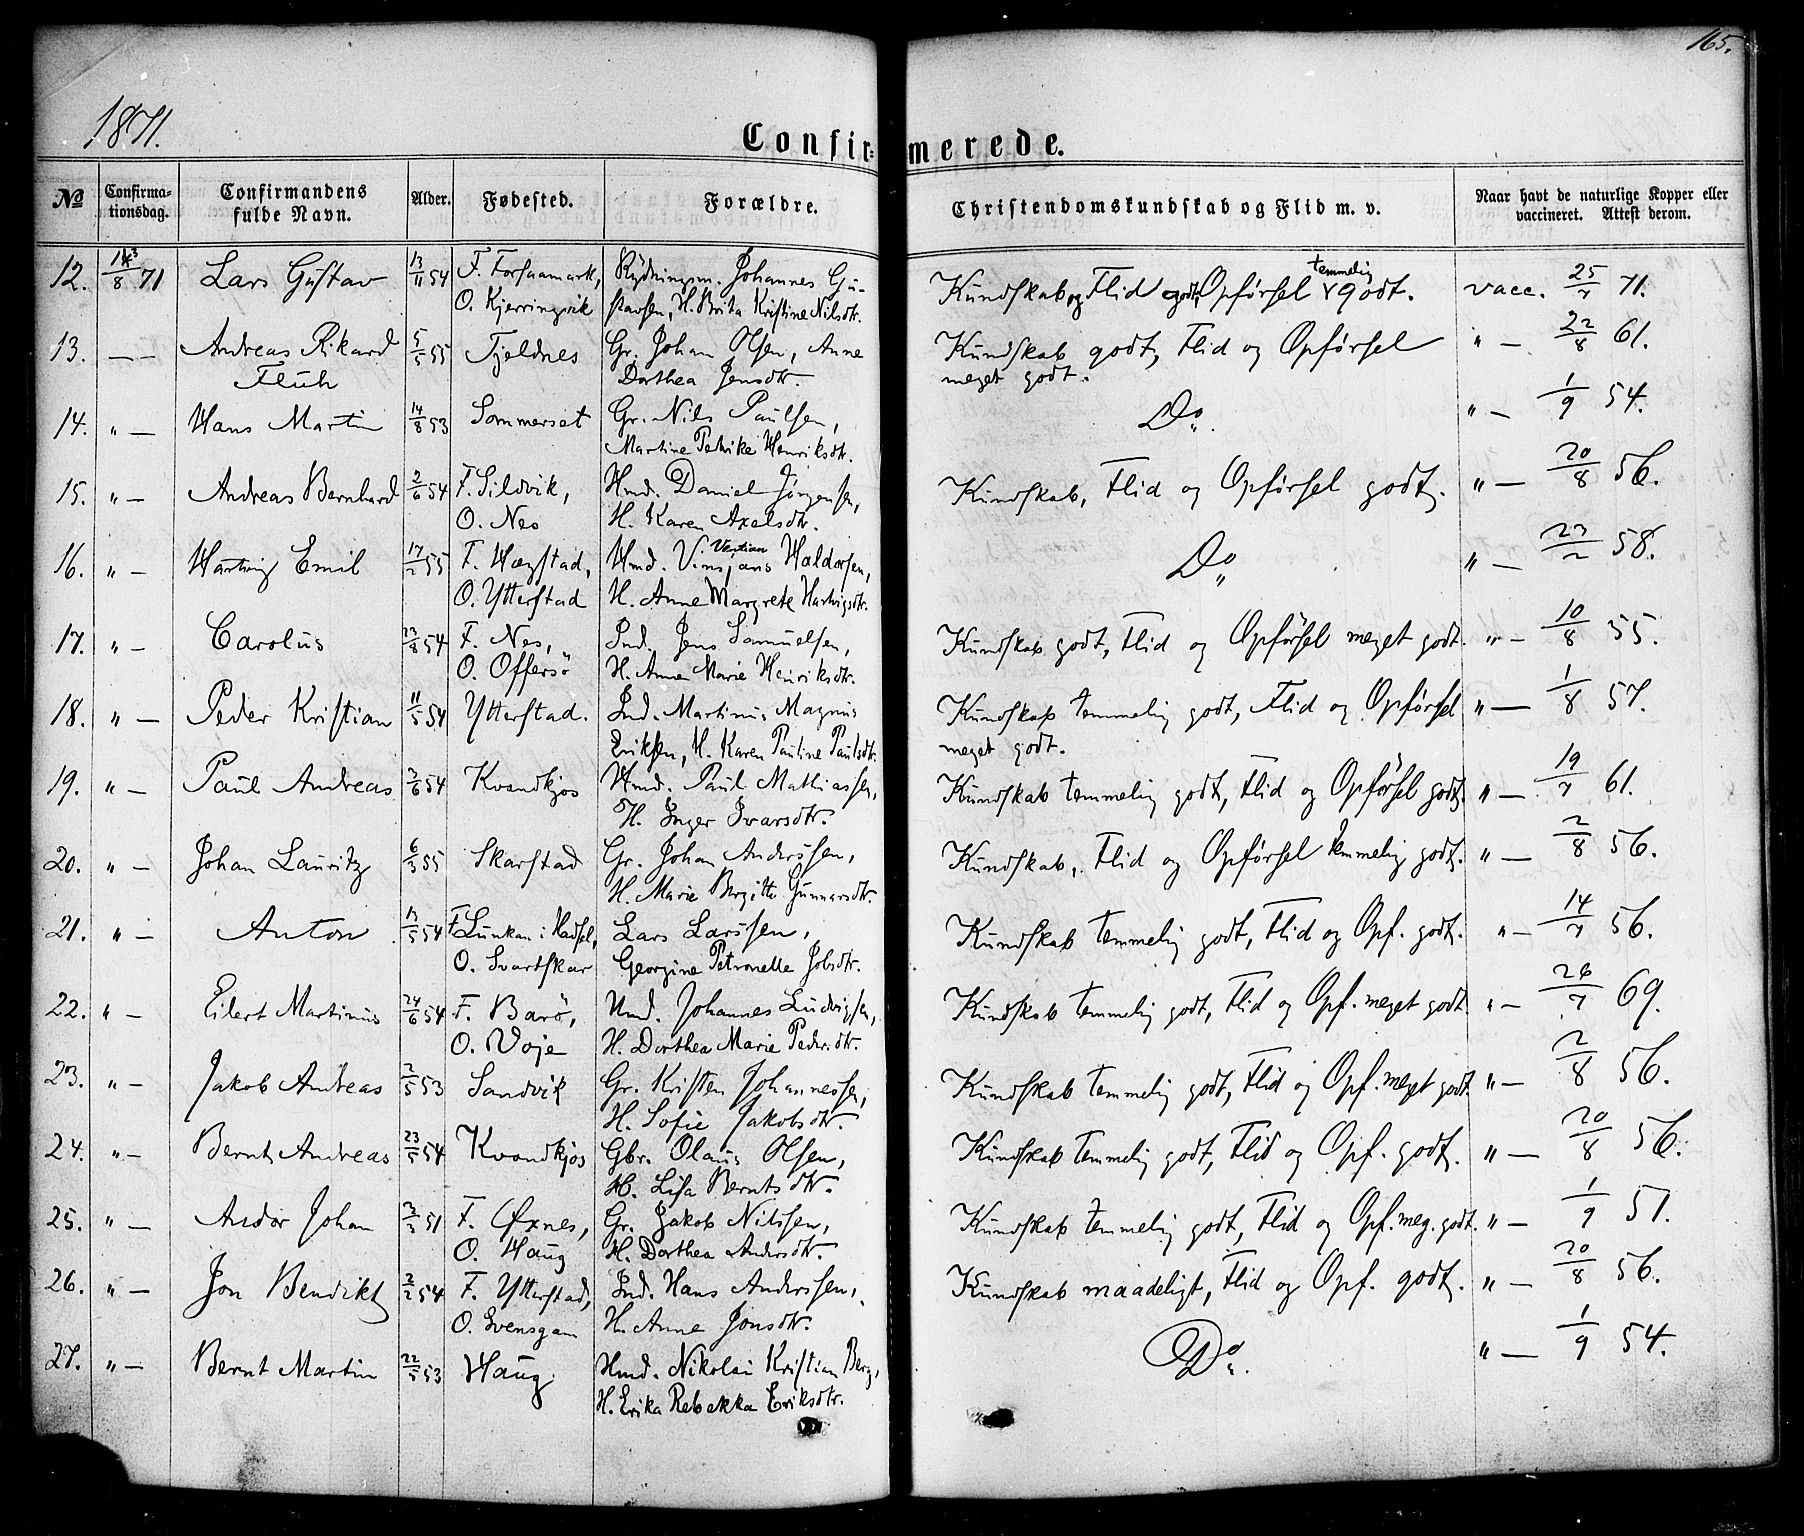 165.
1871.
Confir= merede.
No
Confirma-
tionsdag.
Confirmandens
fulde Navn.
Alder.
Fødested.
Forældre.
Christendomskundskab og Flid m. v.
Naar havt de naturlige Kopper eller
vaccineret. Attest derom.
12. 13/8 71 Lars Gustav 13/11 54 F. Forsaamark, Rydningsm. Johannes Gu- Kundskab og Flid godt, Opførsel temmelig godt. vacc. 25/7 71.
O. Kjerringvik stavsen, H. Brita Kristine Nilsdtr.
13. — — Andreas Rikard 5/5 55 Tjeldnes Gr. Johan Olsen, Anne Kundskab godt, Flid og Opførsel " — 22/8 61.
Fluh Dorthea Jensdtr. meget godt.
14. " — Hans Martin 14/8 53 Sommerset Gr. Nils Paulsen, Do. " — 1/9 54.
Martine Petrike Henriksdtr.
15. " — Andreas Bernhard 2/6 54 F. Sildvik, Hmd. Daniel Jørgensen, Kundskab, Flid og Opførsel godt. " — 20/8 56.
O. Nes H. Karen Axelsdtr.
16. " — Hartvig Emil 17/2 55 F. Hægstad, Hmd. Haldorsen, Do " — 23/2 58.
O. Ytterstad H. Anne Margrete Hartvigsdtr.
17. " — Carolus 23/8 54 F. Nes, Ind. Jens Samuelsen, Kundskab godt, Flid og Opførsel meget godt. " — 10/8 55.
O. Offersö H. Anne Marie Henriksdtr.
18. " — Peder Kristian 11/5 54 Ytterstad. Ind. Martinus Magnus Kundskab temmelig godt, Flid og Opførsel " — 1/8 57.
Eriksen, H. Karen Pauline Paulsdtr. meget godt.
19. " — Paul Andreas 3/6 54 Kvandkjos Hmd. Paul Mathiassen, Kundskab temmelig godt, Flid og Opførsel godt. " — 19/7 61.
H. Inger Ivarsdtr.
20. " — Johan Lauritz 6/3 55 Skarstad Gr. Johan Anderssen, Kundskab, Flid og Opførsel temmelig godt. " — 2/8 56.
H. Marie Birgitte Gunnarsdtr.
21. " — Anton 13/5 54 F. Lunkan i Hadsel, Lars Larssen, Kundskab temmelig godt, Flid og Opf. godt. " — 14/7 56.
O. Svartskar Georgine Petronelle Jobsdtr.
22. " — Eilert Martinus 24/6 54 F. Barö, Hmd. Johannes Ludvigsen, Kundskab temmelig godt, Flid og Opf. meget godt. " — 26/7 69.
O. Voje H. Dorthea Marie Pedersdtr.
23. " — Jakob Andreas 2/5 53 Sandvik Gr. Kristen Johannessen, Kundskab temmelig godt, Flid og Opf. meget godt. " — 2/8 56.
H. Sofie Jakobsdtr.
24. " — Bernt Andreas 23/5 54 Kvandkjos Gbr. Olaus Olsen, Kundskab temmelig godt, Flid og Opf. godt. " — 20/8 56.
H. Lisa Berntsdtr.
25. " — Andor Johan 2/3 51 F. Øxnes, Gr. Jakob Nilssen, Kundskab temmelig godt, Flid og Opf. meg. godt. " — 1/9 51.
O. Haug H. Dorthea Andersdtr.
26. " — Jon Bendikt 2/2 54 F. Ytterstad, Ind. Hans Anderssen, Kundskab maadeligt, Flid og Opf. godt. " — 20/8 56.
O. Svensgam H. Anne Jonsdtr.
27. " — Bernt Martin 22/5 53 Haug Hmd. Nikolai Kristian Berg, Do. " — 1/9 54.
H. Erika Rebekka Eriksdtr.